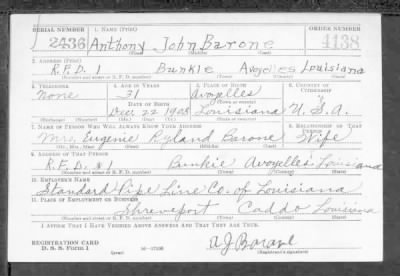 SERIAL NUMBER 1. NAME (Print) ORDER NUMBER
2436 Anthony John Barone 1138
(First) (Middle) (Last)
2. ADDRESS (Print)
R.F.D. 1 Bunkie Avoyelles Louisiana
(Number and street or R. F. D. number) (Town) (County) (State)
3. TELEPHONE 4. AGE IN YEARS 5. PLACE OF BIRTH 6. COUNTRY OF CITIZENSHIP
None 31 Avoyelles
DATE OF BIRTH (Town or county)
Dec 22 1908 Louisiana U.S.A.
(Exchange) (Number) (Mo.) (Day) (Yr.) (State or country)
7. NAME OF PERSON WHO WILL ALWAYS KNOW YOUR ADDRESS 8. RELATIONSHIP OF THAT PERSON
Mrs. Eugenie Ryland Barone Wife
(Mr., Mrs., Miss) (First) (Middle) (Last)
9. ADDRESS OF THAT PERSON
R.F.D. #1 Bunkie Avoyelles Louisiana
(Number and street or R. F. D. number) (Town) (County) (State)
10. EMPLOYER'S NAME
Standard Pipe Line Co. of Louisiana
11. PLACE OF EMPLOYMENT OR BUSINESS
Shreveport Caddo Louisiana
(Number and street or R. F. D. number) (Town) (County) (State)
I AFFIRM THAT I HAVE VERIFIED ABOVE ANSWERS AND THAT THEY ARE TRUE.
REGISTRATION CARD
D. S. S. Form 1 (over) A J Barone